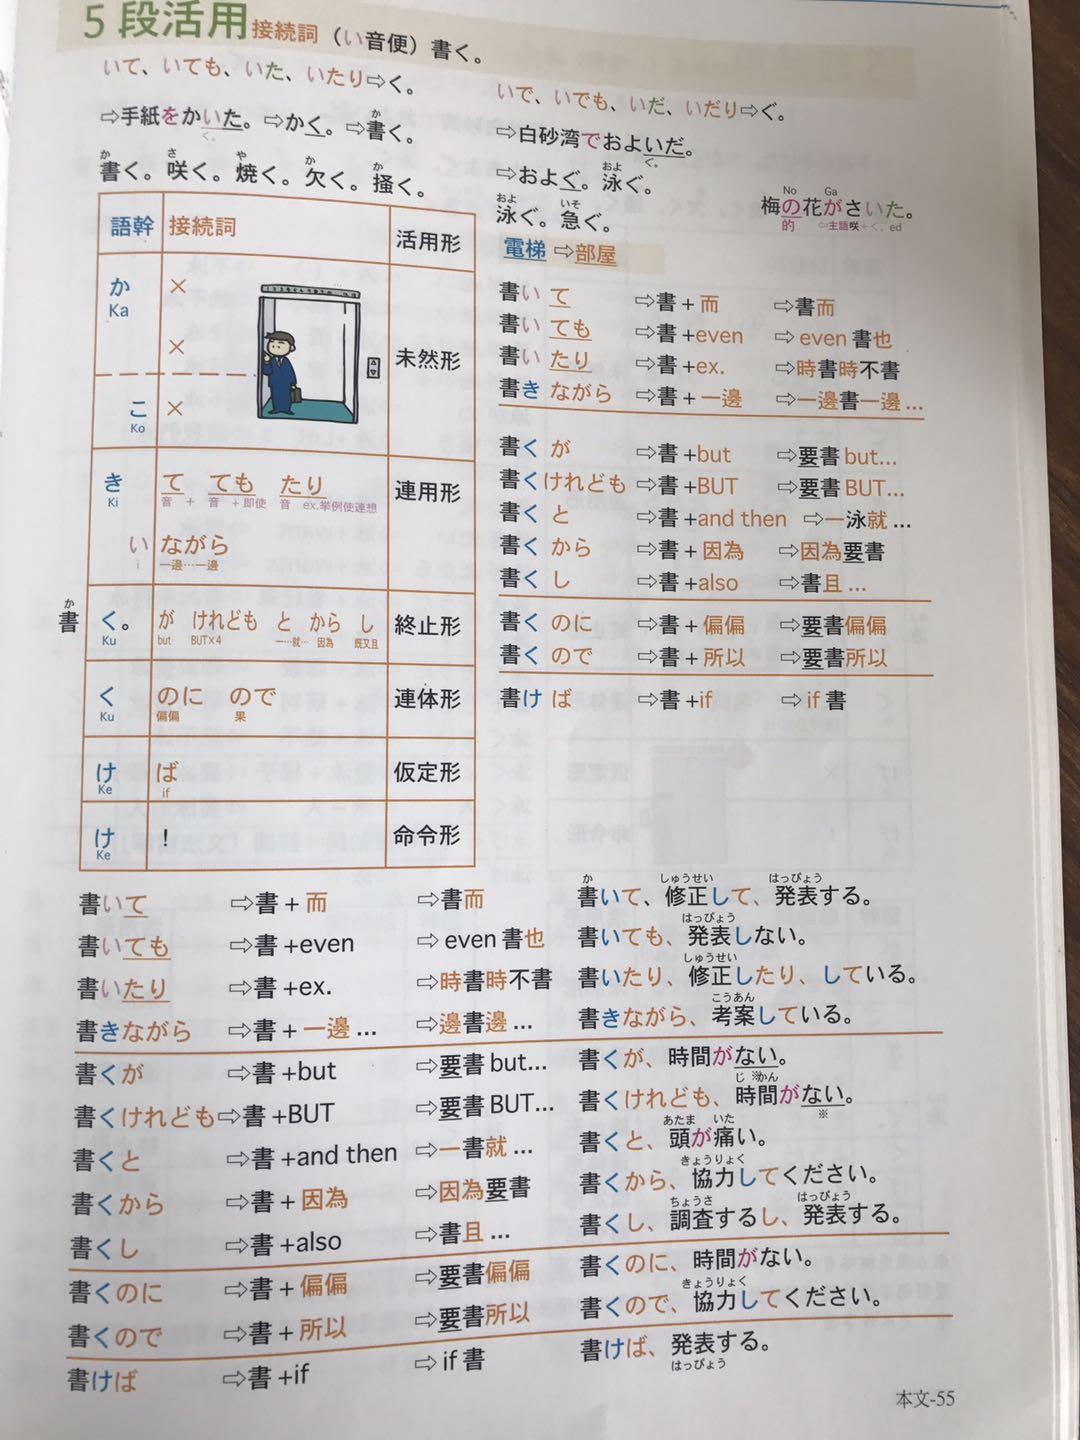 5段活用接続詞（い音便）書く。
いて、いても、いた、いたり⇨く。
⇨手紙をかいた。⇨かく。⇨書く。
く。
か
書く。咲く。焼く。欠く。掻く。
か さ や か か
いで、いでも、いだ、いだり⇨ぐ。
⇨白砂湾でおよいだ。
ぐ。
⇨およぐ。泳ぐ。
およ
泳ぐ。急ぐ。
およ いそ
電梯 ⇨部屋
No Ga
梅の花がさいた。
的 ⇦主語咲＋く。ed
語幹 接続詞 活用形
か ×
Ka
× 未然形
こ ×
Ko
き て ても たり 連用形
Ki 音 + 音 +即使 音 ex.挙例使連想
い ながら
i 一邊…一邊
か
書 く。 が けれども と から し 終止形
Ku but BUT×4 一…就… 因為 既又且
く のに ので 連体形
Ku 偏偏 果
け ば 仮定形
Ke if
け ! 命令形
Ke
書い て ⇨書 + 而 ⇨書而
書い ても ⇨書 +even ⇨ even 書也
書い たり ⇨書 +ex. ⇨時書時不書
書き ながら ⇨書 + 一邊 ⇨一邊書一邊 ...
書く が ⇨書 +but ⇨要書 but...
書く けれども ⇨書 +BUT ⇨要書 BUT...
書く と ⇨書 +and then ⇨一泳就 ...
書く から ⇨書 + 因為 ⇨因為要書
書く し ⇨書 +also ⇨書且 ...
書く のに ⇨書 + 偏偏 ⇨要書偏偏
書く ので ⇨書 + 所以 ⇨要書所以
書け ば ⇨書 +if ⇨ if 書
か しゅうせい はっぴょう
書いて ⇨書 + 而 ⇨書而 書いて、修正して、発表する。
はっぴょう
書いても ⇨書 +even ⇨ even 書也 書いても、発表しない。
しゅうせい
書いたり ⇨書 +ex. ⇨時書時不書 書いたり、修正したり、している。
こうあん
書きながら ⇨書 + 一邊 ... ⇨邊書邊 ... 書きながら、考案している。
書くが ⇨書 +but ⇨要書 but... 書くが、時間がない。
じ ※かん
書くけれども ⇨書 +BUT ⇨要書 BUT... 書くけれども、時間がない。
※
あたま いた
書くと ⇨書 +and then ⇨一書就 ... 書くと、頭が痛い。
きょうりょく
書くから ⇨書 + 因為 ⇨因為要書 書くから、協力してください。
ちょうさ はっぴょう
書くし ⇨書 +also ⇨書且 ... 書くし、調査するし、発表する。
書くのに ⇨書 + 偏偏 ⇨要書偏偏 書くのに、時間がない。
きょうりょく
書くので ⇨書 + 所以 ⇨要書所以 書くので、協力してください。
書けば ⇨書 +if ⇨ if 書 書けば、発表する。
はっぴょう
本文-55